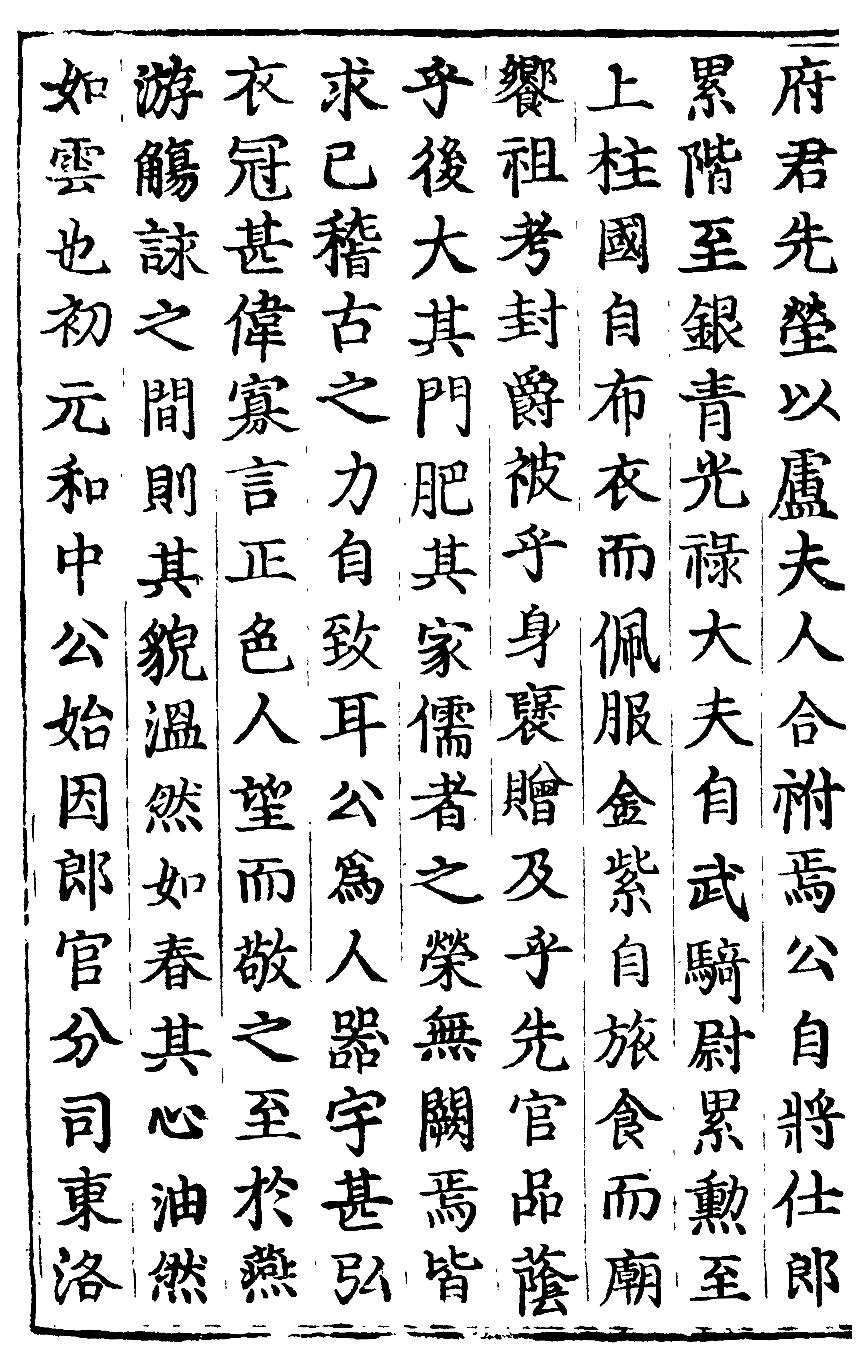 府君先塋以盧夫人合祔焉公自將仕郎
累階至銀青光祿大夫自武騎尉累勳至
上柱國自布衣而佩服金紫自旅食而廟
饗祖考封爵被乎身褒贈及乎先官品蔭
乎後大其門肥其家儒者之榮無闕焉皆
求已稽古之力自致耳公爲人器宇甚弘
衣冠甚偉寡言正色人望而敬之至於燕
游觴詠之間則其貌溫然如春其心油然
如雲也初元和中公始因郎官分司東洛